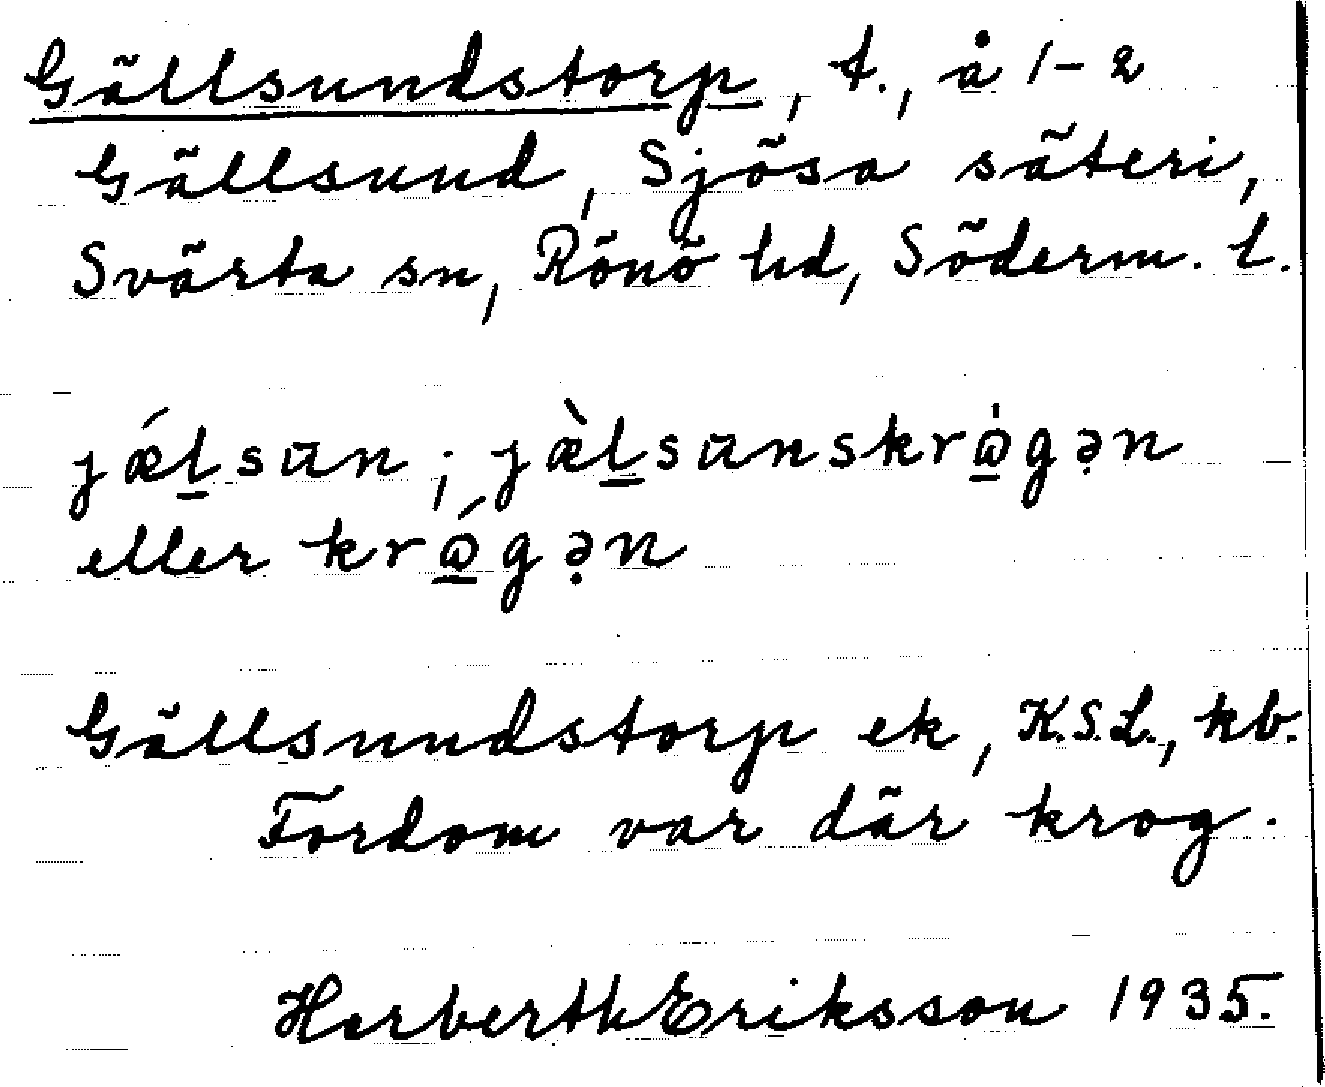 Gällsundstorp, t., å 1-2
Gällsund, Sjösa säteri,
Svärta sn, Rönö hd, Söderm. l.
jǽl̲sɑn; jæ̀l̲sɑnskrⱺ̲gə̣n
eller krⱺ̲́gə̣n
Gällsundstorp ek, K.S.L., kb.
Fordom var där krog.
Herberth Eriksson 1935.